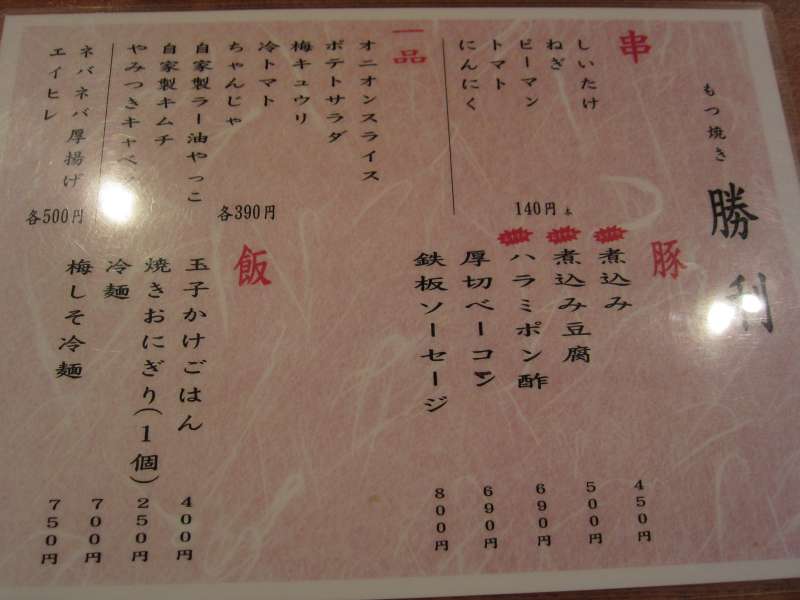 もつ焼き 勝利
串
しいたけ
ねぎ
ピーマン
トマト
にんにく
140円 本
一品
オニオンスライス
ポテトサラダ
梅キュウリ
冷トマト
ちゃんじゃ
自家製ラー油やっこ
自家製キムチ
やみつきキャベ
各390円
ネバネバ厚揚げ
エイヒレ
各500円
豚
煮込み 450円
煮込み豆腐 500円
ハラミポン酢 690円
厚切ベーコン 690円
鉄板ソーセージ 800円
飯
玉子かけごはん 400円
焼きおにぎり(1個) 250円
冷麺 700円
梅しそ冷麺 750円